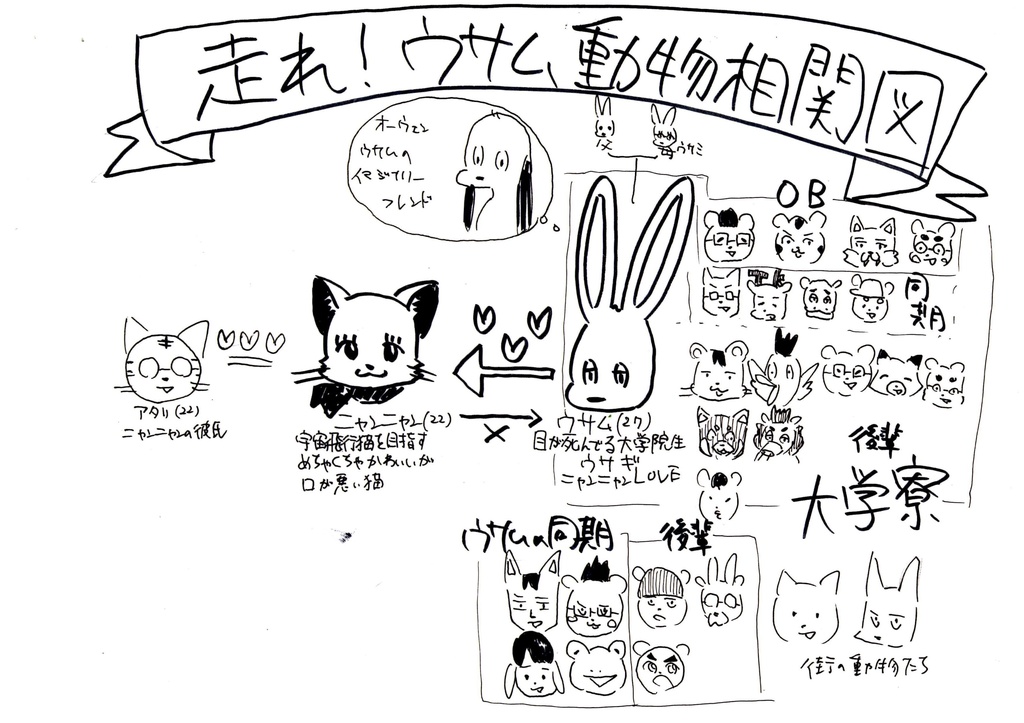 走れ！ウサム動物相関図
オーウェン
ウサムの
イマジナリー
フレンド
父
母
ウサミ
OB
同期
アタリ(22)
ニャンニャンの彼氏
ニャンニャン(22)
宇宙飛行猫を目指す
めちゃくちゃかわいいが
口が悪い猫
ウサム(27)
目が死んでる大学院生
ウサギ
ニャンニャンLOVE
後輩
大学寮
ウサムの同期
後輩
街の動物たち